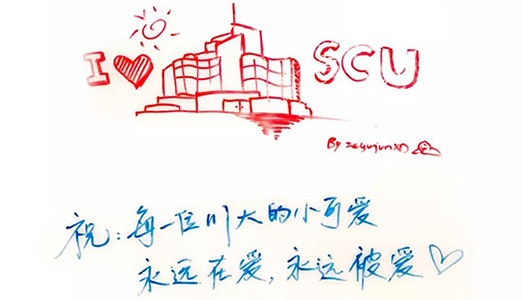 I ♥ SCU
By zeyuyunXD
祝：每一位川大的小可爱
永远在爱，永远被爱♡